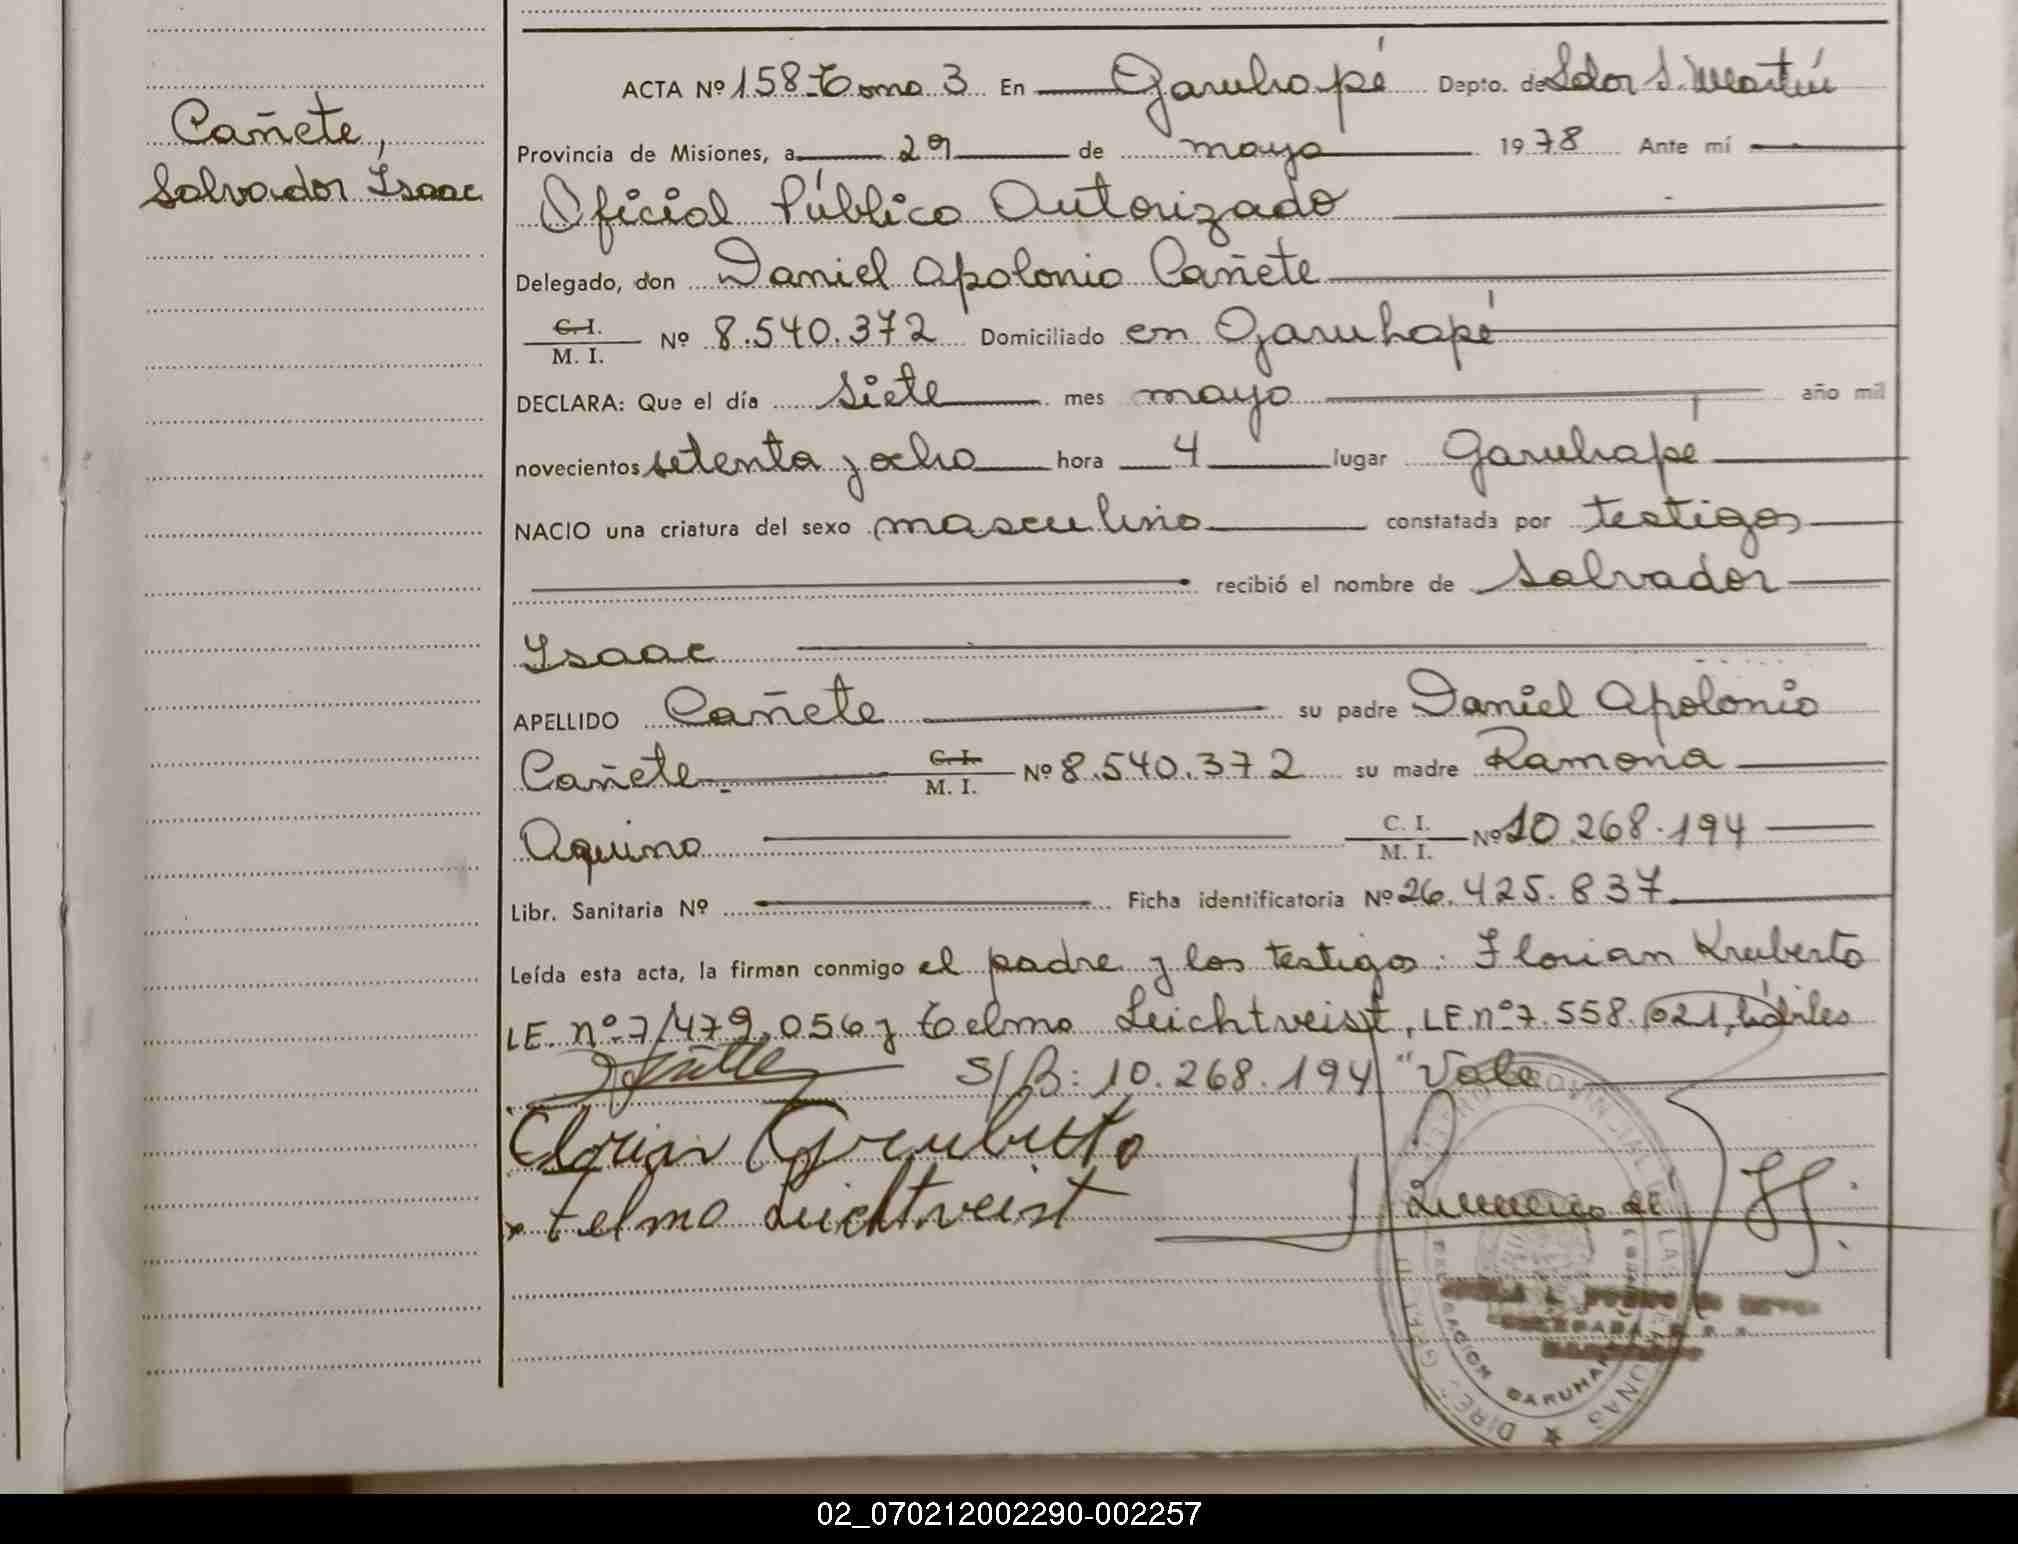 Cañete,
Salvador Isaac
ACTA Nº 158 - Tomo 3 En Garuhapé Depto. de Ldor S. Martín
Provincia de Misiones, a 29 de mayo 1978 Ante mí
Oficial Público Autorizado
Delegado, don Daniel Apolonio Cañete
C. I.
M. I. Nº 8.540.372 Domiciliado en Garuhapé
DECLARA: Que el día siete mes mayo año mil
novecientos setenta y ocho hora 4 lugar Garuhapé
NACIO una criatura del sexo masculino constatada por testigos
recibió el nombre de Salvador
Isaac
APELLIDO Cañete su padre Daniel Apolonio
Cañete C. I. M. I. Nº 8.540.372 su madre Ramona
Aquino C. I. M. I. Nº 10.268.194
Libr. Sanitaria Nº Ficha identificatoria Nº 26.425.837
Leída esta acta, la firman conmigo el padre y los testigos: Florian
LE. nº 7/479.056 y Telmo Leichtveist, LE nº 7.558.021, hábiles
S/B: 10.268.194 "Vale
Florian
Telmo Leichtveist
GARUHAP
02_070212002290-002257